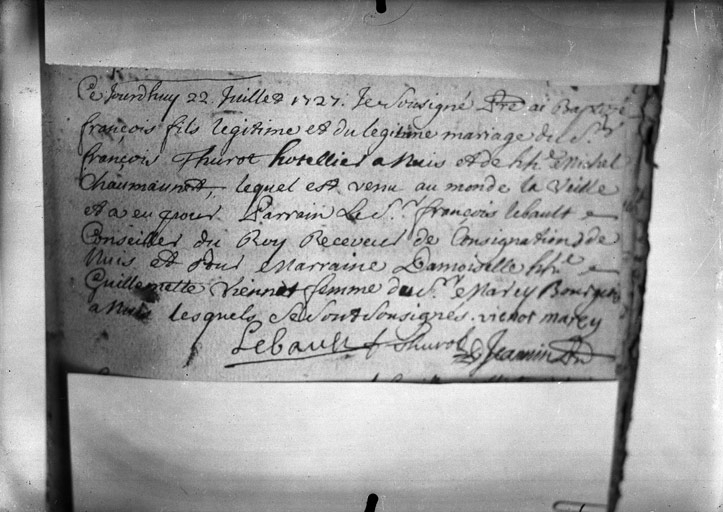 Ce Jourdhuy 22 Juillet 1727. Je Sousigné Ptre ai Baptizé
françois fils legitime et du legitime mariage du Sr.
françois Thurot hotellier a Nuis et de
lequel est venu au monde la Veille
et a eu pour Parrain Le Sr. françois lebault
Conseiller du Roy Receveur de Consignations de
Nuis et pour Marraine Damoiselle
Guillemette Viennot femme du Sr. Marey Bourgeois
a Nuis lesquels Se Sont Sousignés. vienot marey
Lebault f Thurot Jeannin Ptre